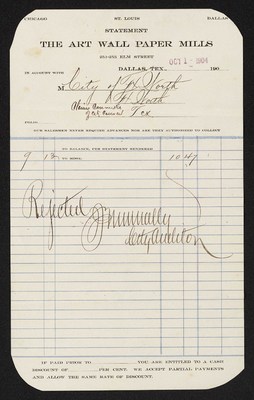 CHICAGO ST. LOUIS DALLAS
STATEMENT
THE ART WALL PAPER MILLS
ELM STREET
OCT 1 1904
DALLAS, TEX. 190
IN ACCOUNT WITH
M City of Ft Worth
Ft Worth
Claims Committee
of City Council Tex
FOLIO
OUR SALESMEN NEVER REQUIRE ADVANCES NOR ARE THEY AUTHORIZED TO COLLECT
TO BALANCE, PER STATEMENT RENDERED
9 13 TO MDSE. 10 47
Rejected
J J Nunnally
City Auditor
IF PAID PRIOR TO YOU ARE ENTITLED TO A CASH
DISCOUNT OF PER CENT. WE ACCEPT PARTIAL PAYMENTS
AND ALLOW THE SAME RATE OF DISCOUNT.